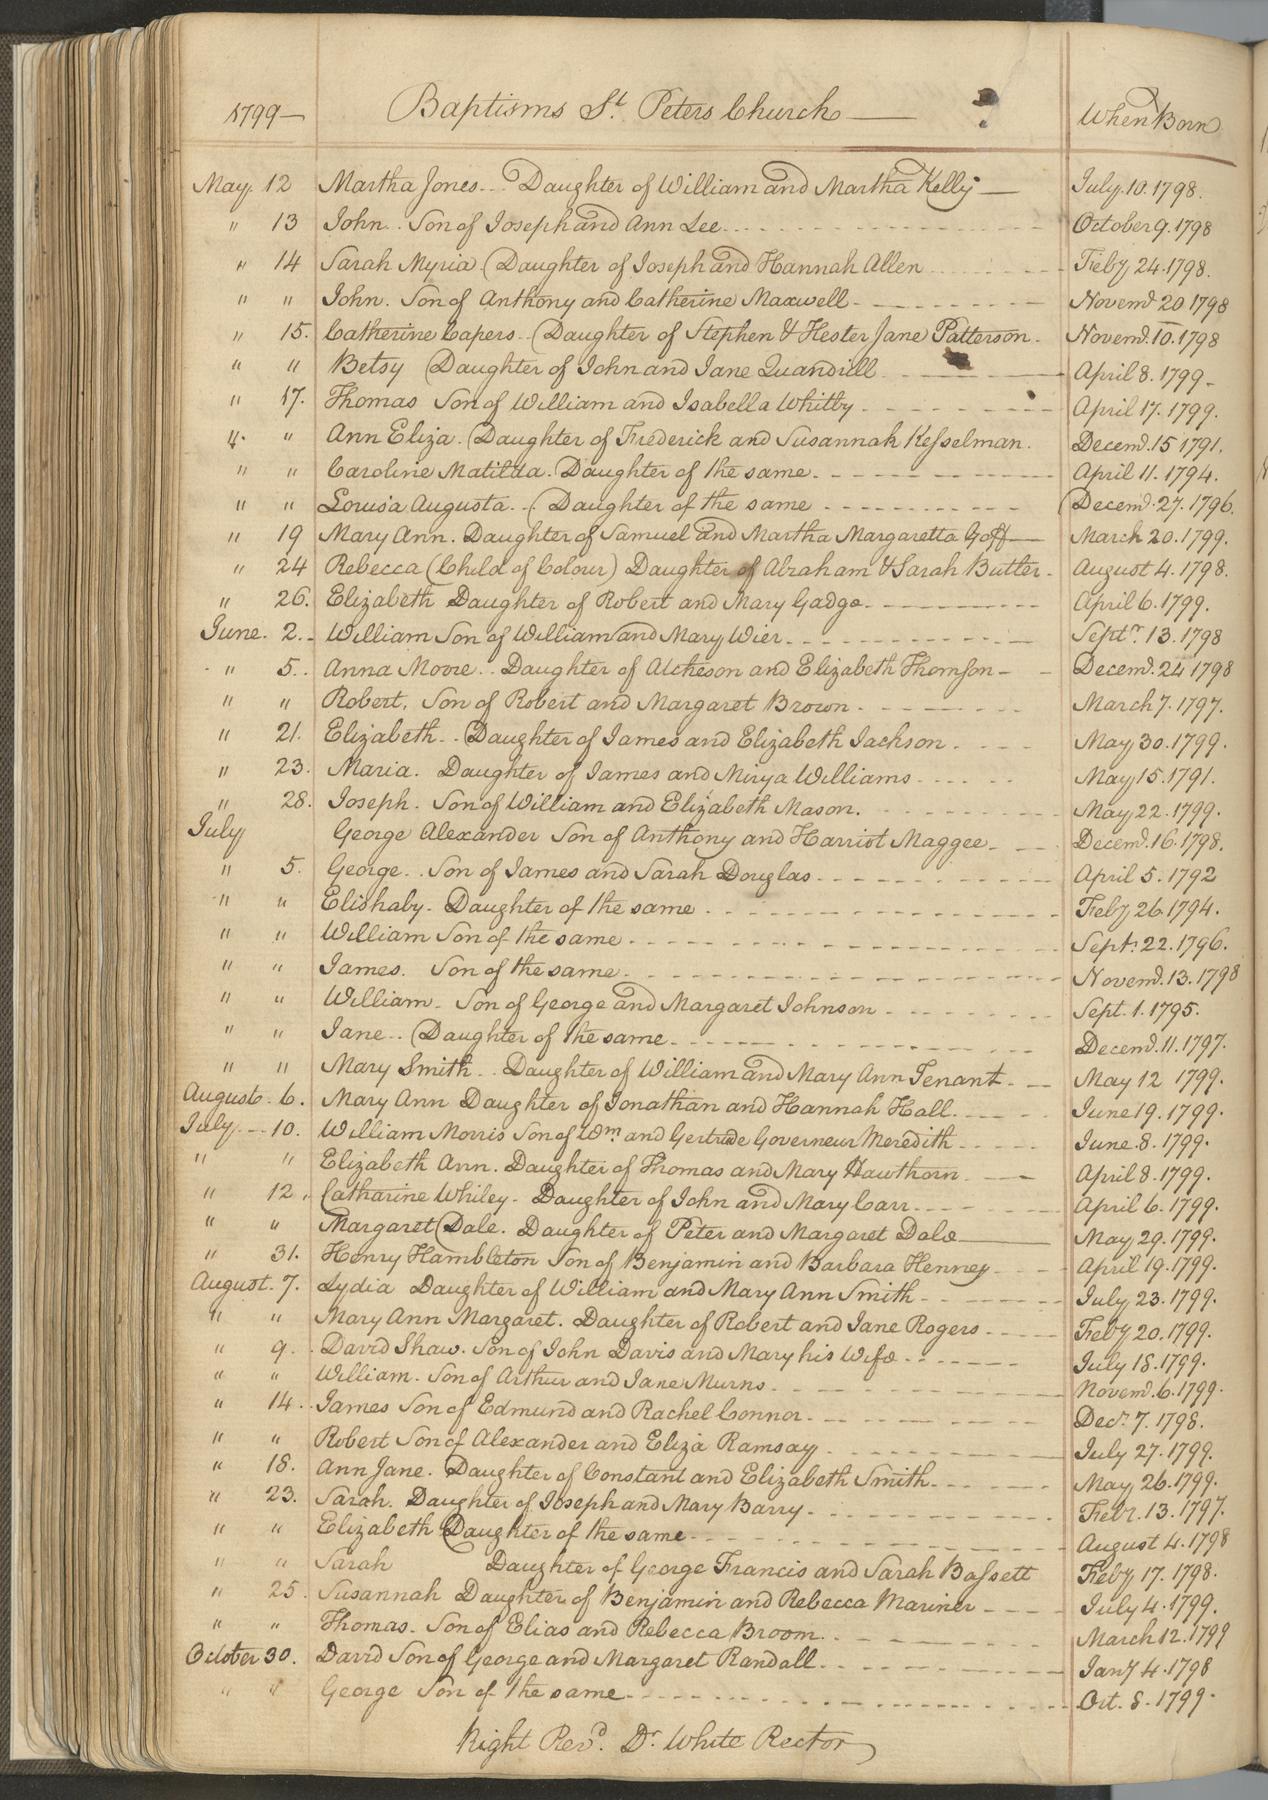 1799 — Baptisms St. Peters Church — When Born
May 12 Martha Jones Daughter of William and Martha Kelly — July 10. 1798.
" 13 John. Son of Joseph and Ann Lee October 9. 1798
" 14 Sarah Myria Daughter of Joseph and Hannah Allen Feby 24. 1798.
" " John. Son of Anthony and Catherine Maxwell Novemd. 20 1798
" 15. Catherine Capers Daughter of Stephen & Hester Jane Patterson Novemd. 10. 1798
" " Betsy Daughter of John and Jane Quandrill April 8. 1799
" 17. Thomas Son of William and Isabella Whitby April 17. 1799.
" " Ann Eliza. Daughter of Frederick and Susannah Kesselman. Decemd. 15 1791.
" " Caroline Matilda. Daughter of the same April 11. 1794.
" " Louisa Augusta. Daughter of the same Decemd. 27. 1796.
" 19 Mary Ann. Daughter of Samuel and Martha Margaretta Goff March 20. 1799.
" 24 Rebecca (Child of Colour) Daughter of Abraham & Sarah Butler August 4. 1798.
" 26. Elizabeth Daughter of Robert and Mary Gadge April 6. 1799.
June. 2. William Son of William and Mary Wier Septr. 13. 1798
" 5. Anna Moore. Daughter of Atcheson and Elizabeth Thomson Decemd. 24 1798
" " Robert. Son of Robert and Margaret Brown March 7. 1797.
" 21. Elizabeth. Daughter of James and Elizabeth Jackson May 30. 1799.
" 23. Maria. Daughter of James and Mirya Williams May 15. 1791.
" 28. Joseph. Son of William and Elizabeth Mason. May 22. 1799.
July George Alexander Son of Anthony and Harriot Maggee Decemd. 16. 1798.
" 5. George. Son of James and Sarah Douglas April 5. 1792
" " Elishaby. Daughter of the same Feby 26. 1794.
" " William Son of the same Sept. 22. 1796.
" " James. Son of the same Novemd. 13. 1798
" " William. Son of George and Margaret Johnson Sept. 1. 1795.
" " Jane. Daughter of the same Decemd. 11. 1797.
" " Mary Smith. Daughter of William and Mary Ann Tenant May 12 1799.
August 6. Mary Ann Daughter of Jonathan and Hannah Hall. June 19. 1799.
July 10. William Morris Son of Wm. and Gertrude Governeur Meredith June 8. 1799.
" " Elizabeth Ann. Daughter of Thomas and Mary Hawthorn April 8. 1799.
" 12. Catharine Whiley. Daughter of John and Mary Carr April 6. 1799.
" " Margaret Dale. Daughter of Peter and Margaret Dale May 29. 1799.
" 31. Henry Hambleton Son of Benjamin and Barbara Henney April 19. 1799.
August. 7. Lydia Daughter of William and Mary Ann Smith July 23. 1799.
" " Mary Ann Margaret. Daughter of Robert and Jane Rogers Feby 20. 1799.
" 9. David Shaw. Son of John Davis and Mary his Wife July 18. 1799.
" " William. Son of Arthur and Jane Murns Novemd. 6. 1799.
" 14. James Son of Edmund and Rachel Connor Decr. 7. 1798.
" " Robert Son of Alexander and Eliza Ramsay July 27. 1799.
" 18. Ann Jane. Daughter of Constant and Elizabeth Smith May 26. 1799.
" 23. Sarah. Daughter of Joseph and Mary Barry Febr. 13. 1797.
" " Elizabeth Daughter of the same August 4. 1798
" " Sarah Daughter of George Francis and Sarah Bassett Feby 17. 1798.
" 25. Susannah Daughter of Benjamin and Rebecca Mariner July 4. 1799.
" " Thomas. Son of Elias and Rebecca Broom March 12. 1799
October 30. David Son of George and Margaret Randall Jany 4. 1798
" " George Son of the same Oct. 8. 1799.
Right Revd. Dr. White Rector